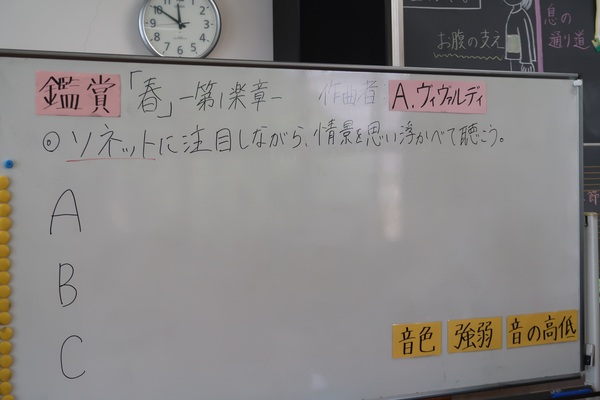 息の
通り道
お腹の支え
鑑賞「春」―第1楽章― 作曲者: A.ヴィヴァルディ
◎ ソネットに注目しながら、情景を思い浮かべて聴こう。
A
B
C
音色 強弱 音の高低
節